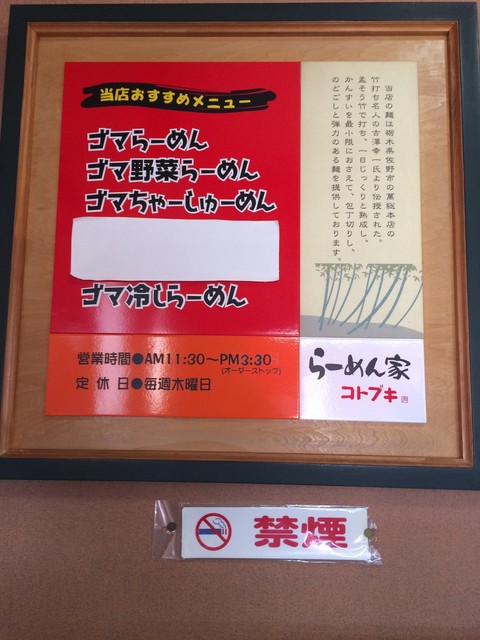 当店おすすめメニュー
ゴマらーめん
ゴマ野菜らーめん
ゴマちゃーしゅーめん
ゴマ冷しらーめん
当店の麺は栃木県佐野市の萬総本店の
竹打ち名人の古澤幸一氏より伝授された。
孟そう竹で打ち、一日じっくりと熟成し、
かんすいを最小限におさえて、包丁切りし、
のどごしと弾力のある麺を提供しております。
営業時間●AM11:30〜PM3:30
(オーダーストップ)
定休日●毎週木曜日
らーめん家
コトブキ
禁煙